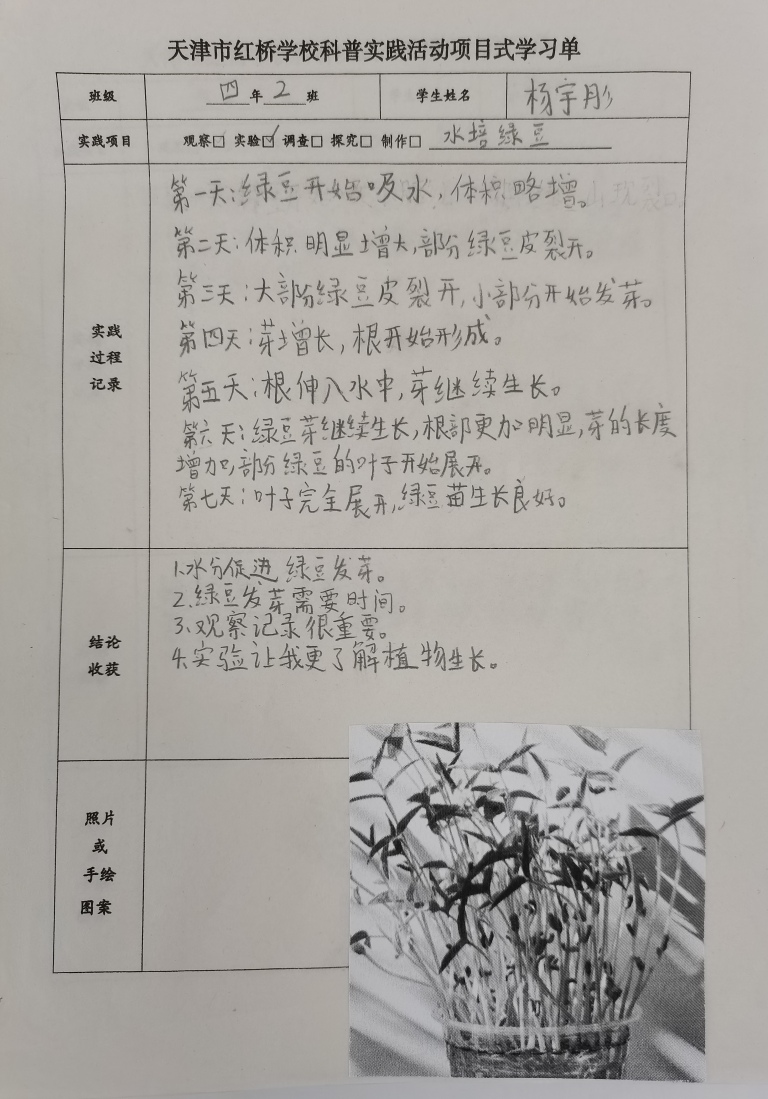 天津市红桥学校科普实践活动项目式学习单
班级 四年2班 学生姓名 杨宇彤
实践项目 观察□ 实验☑ 调查□ 探究□ 制作□ 水培绿豆
实践
过程
记录
第一天:绿豆开始吸水,体积略增。
第二天:体积明显增大,部分绿豆皮裂开。
第三天:大部分绿豆皮裂开,小部分开始发芽。
第四天:芽增长,根开始形成。
第五天:根伸入水中,芽继续生长。
第六天:绿豆芽继续生长,根部更加明显,芽的长度
增加,部分绿豆的叶子开始展开。
第七天:叶子完全展开,绿豆苗生长良好。
结论
收获
1.水分促进绿豆发芽。
2.绿豆发芽需要时间。
3.观察记录很重要。
4.实验让我更了解植物生长。
照片
或
手绘
图案